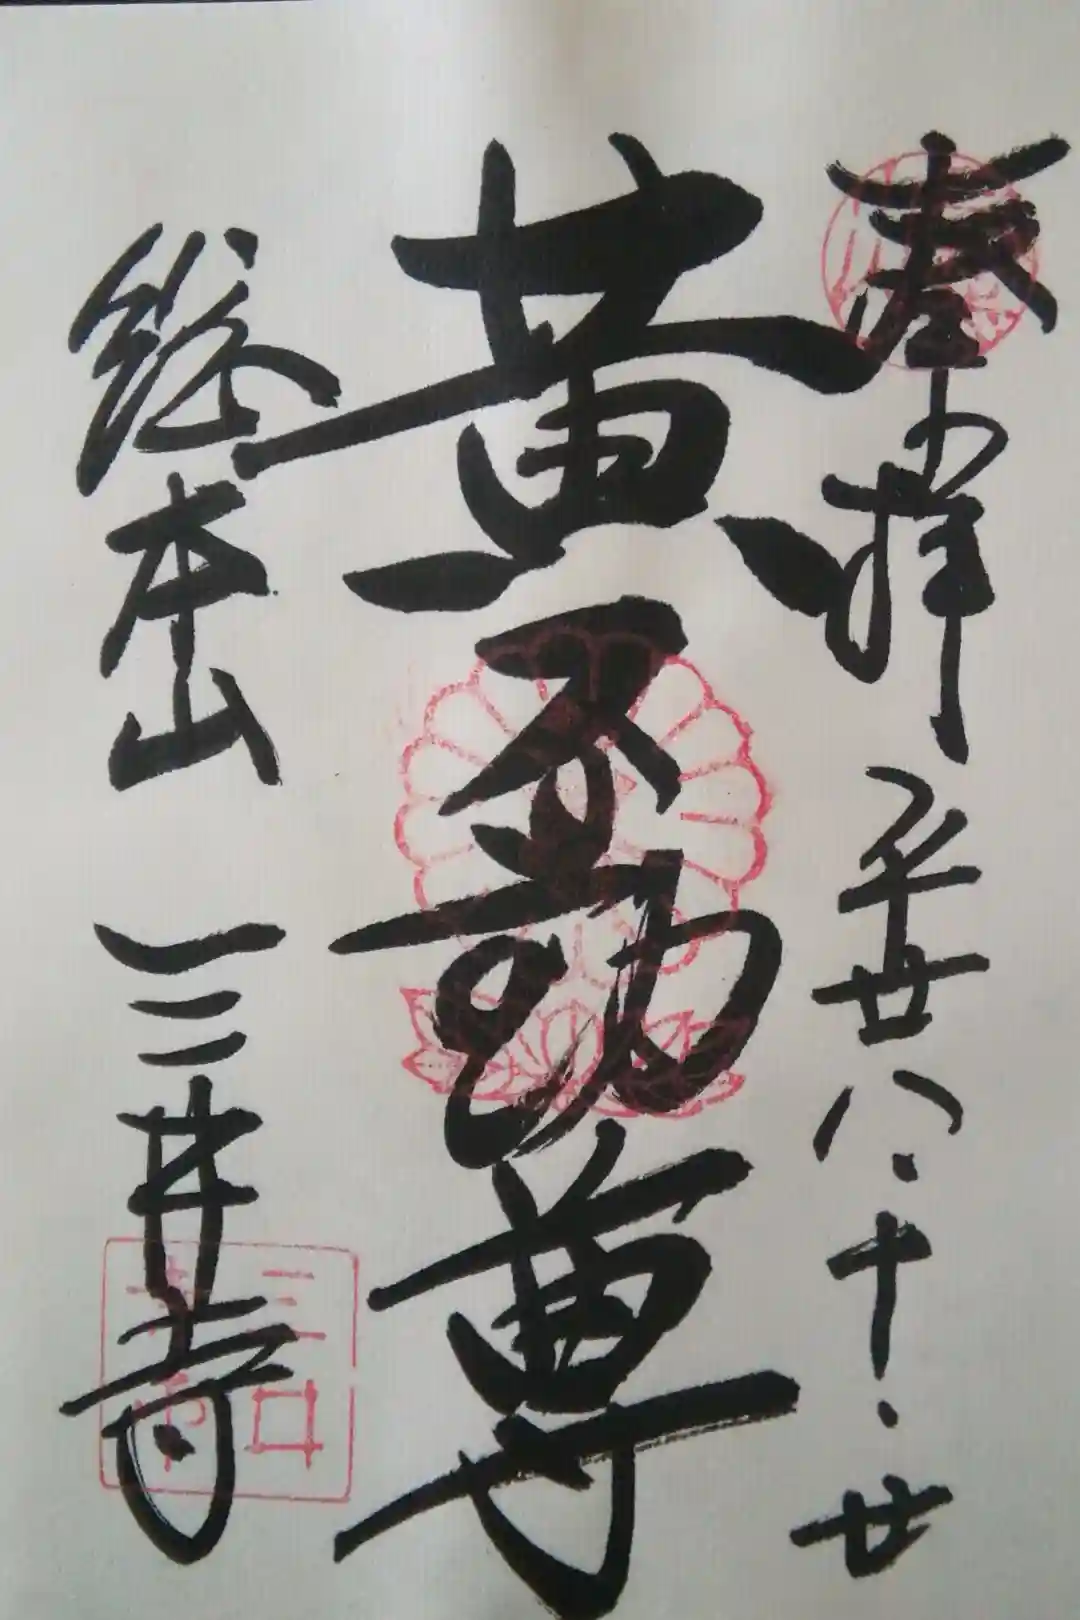 奉拝 平廿八.十.廿
黄不動尊
総本山 三井寺
三井寺印